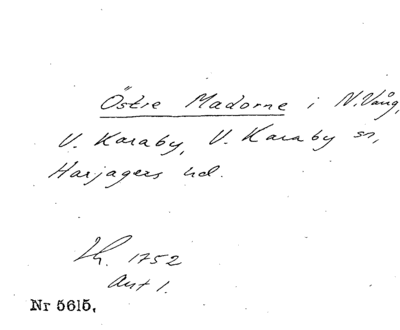 Östre Madorne i N. Vång,
V. Karaby, V. Karaby sn,
Harjagers hd.
Lh. 1752
Akt 1.
Nr 5615.